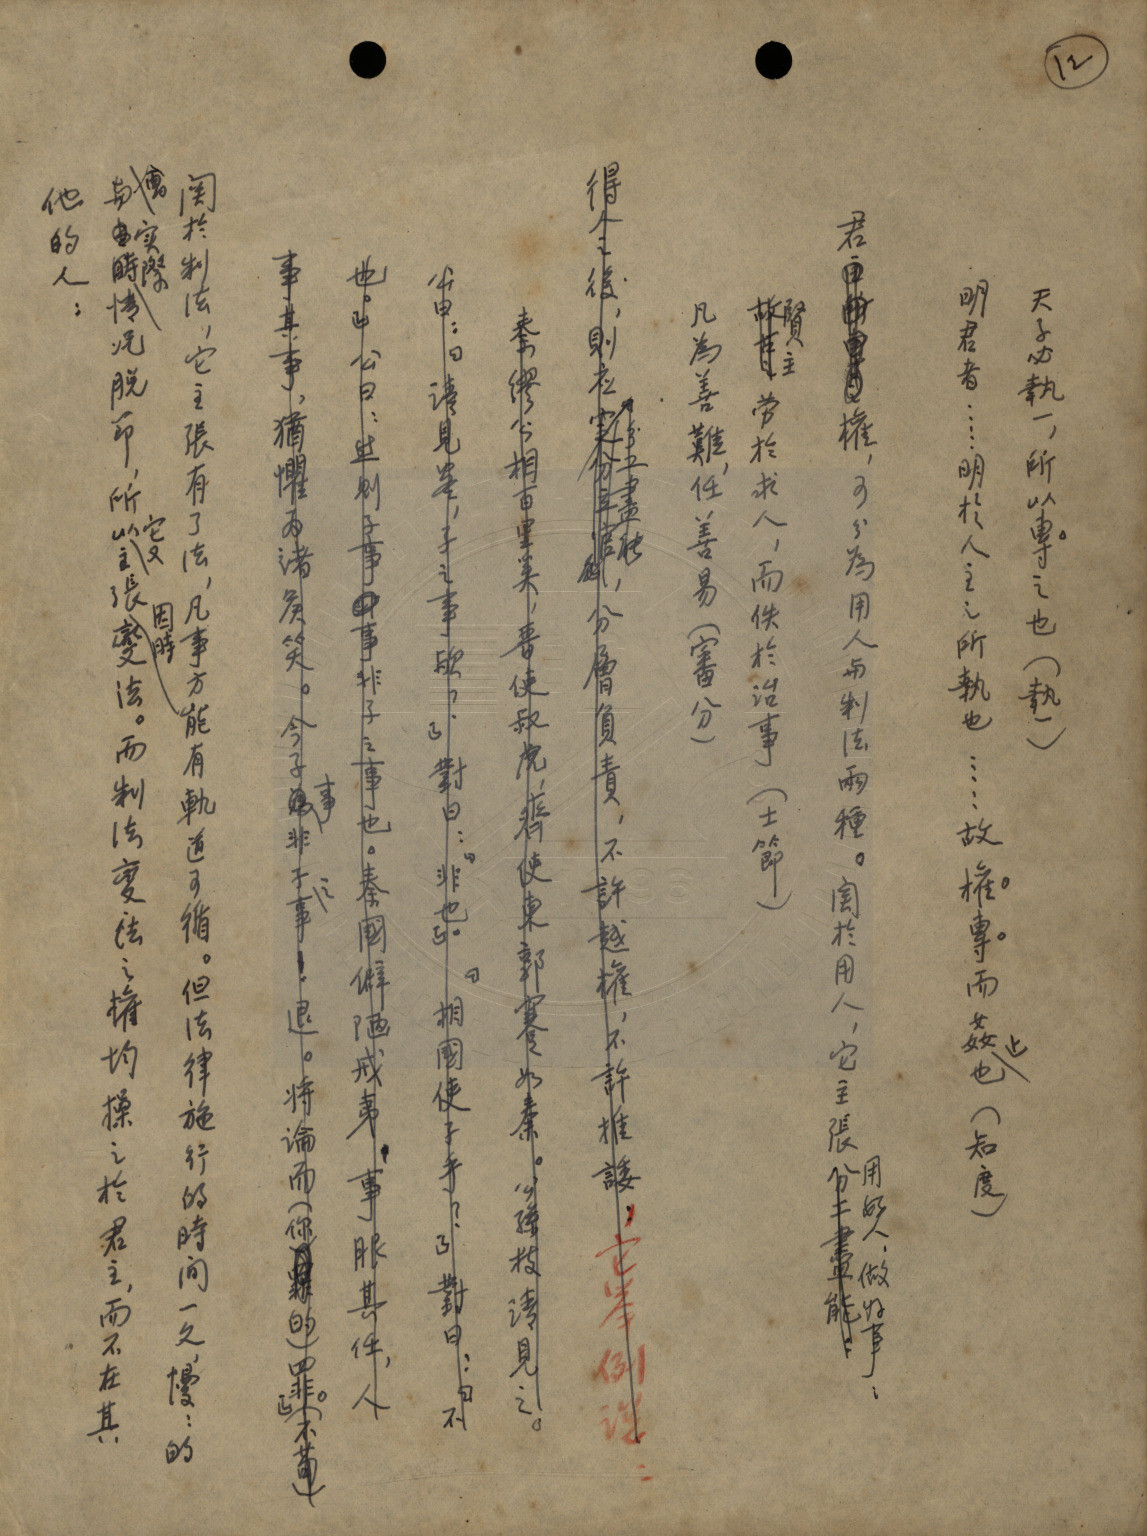 12
天子必執一，所以專之也（執一）
明君者……明於人主之所執也……故權專而姦止（知度）
君權，可分為用人與制法兩種。關於用人，它主張用好人，做好事：
賢主勞於求人，而佚於治事（士節）
凡為善難，任善易（審分）
得人之後，則應分工盡能，分層負責，不許越權，不許推諉，它举例説：
秦繆公相百里奚，晋使叔虎，齊使東郭蹇如秦。公孫枝請見之。
公曰：「請見客，子之事歟？」對曰：「非也。」「相國使子乎？」對曰：「不
也。」公曰：然則子事非子之事也。秦國僻陋戎夷，事服其任，人
事其事，猶懼為諸侯笑。今子事非子之事！退。將論而（你的）罪。」（不苟）
關於制法，它主張有了法，凡事方能有軌道可循。但法律施行的時間一久，慢慢的
會與实際情况脱節，所以它又主張因時變法。而制法變法之權均操之於君主，而不在其
他的人：